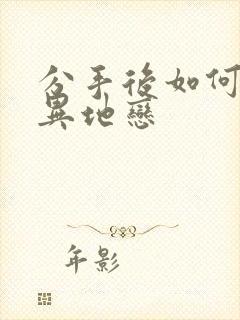 分手後如何
異地戀
年影